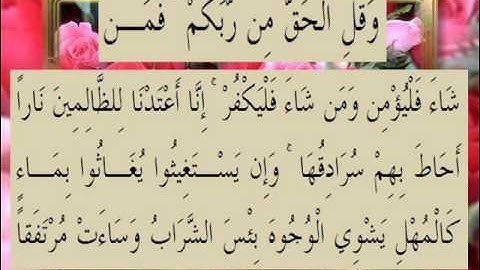 وَقُلِ الْحَقُّ مِن رَّبِّكُمْ فَمَــــن
شَاءَ فَلْيُؤْمِن وَمَن شَاءَ فَلْيَكْفُرْ ۚ إِنَّا أَعْتَدْنَا لِلظَّالِمِينَ نَاراً
أَحَاطَ بِهِمْ سُرَادِقُهَا ۚ وَإِن يَسْــتَغِيثُوا يُغَــاثُوا بِمَـــاءٍ
كَالْمُهْلِ يَشْوِي الْوُجُوهَ بِئْسَ الشَّرَابُ وَسَاءَتْ مُرْتَفَقاً